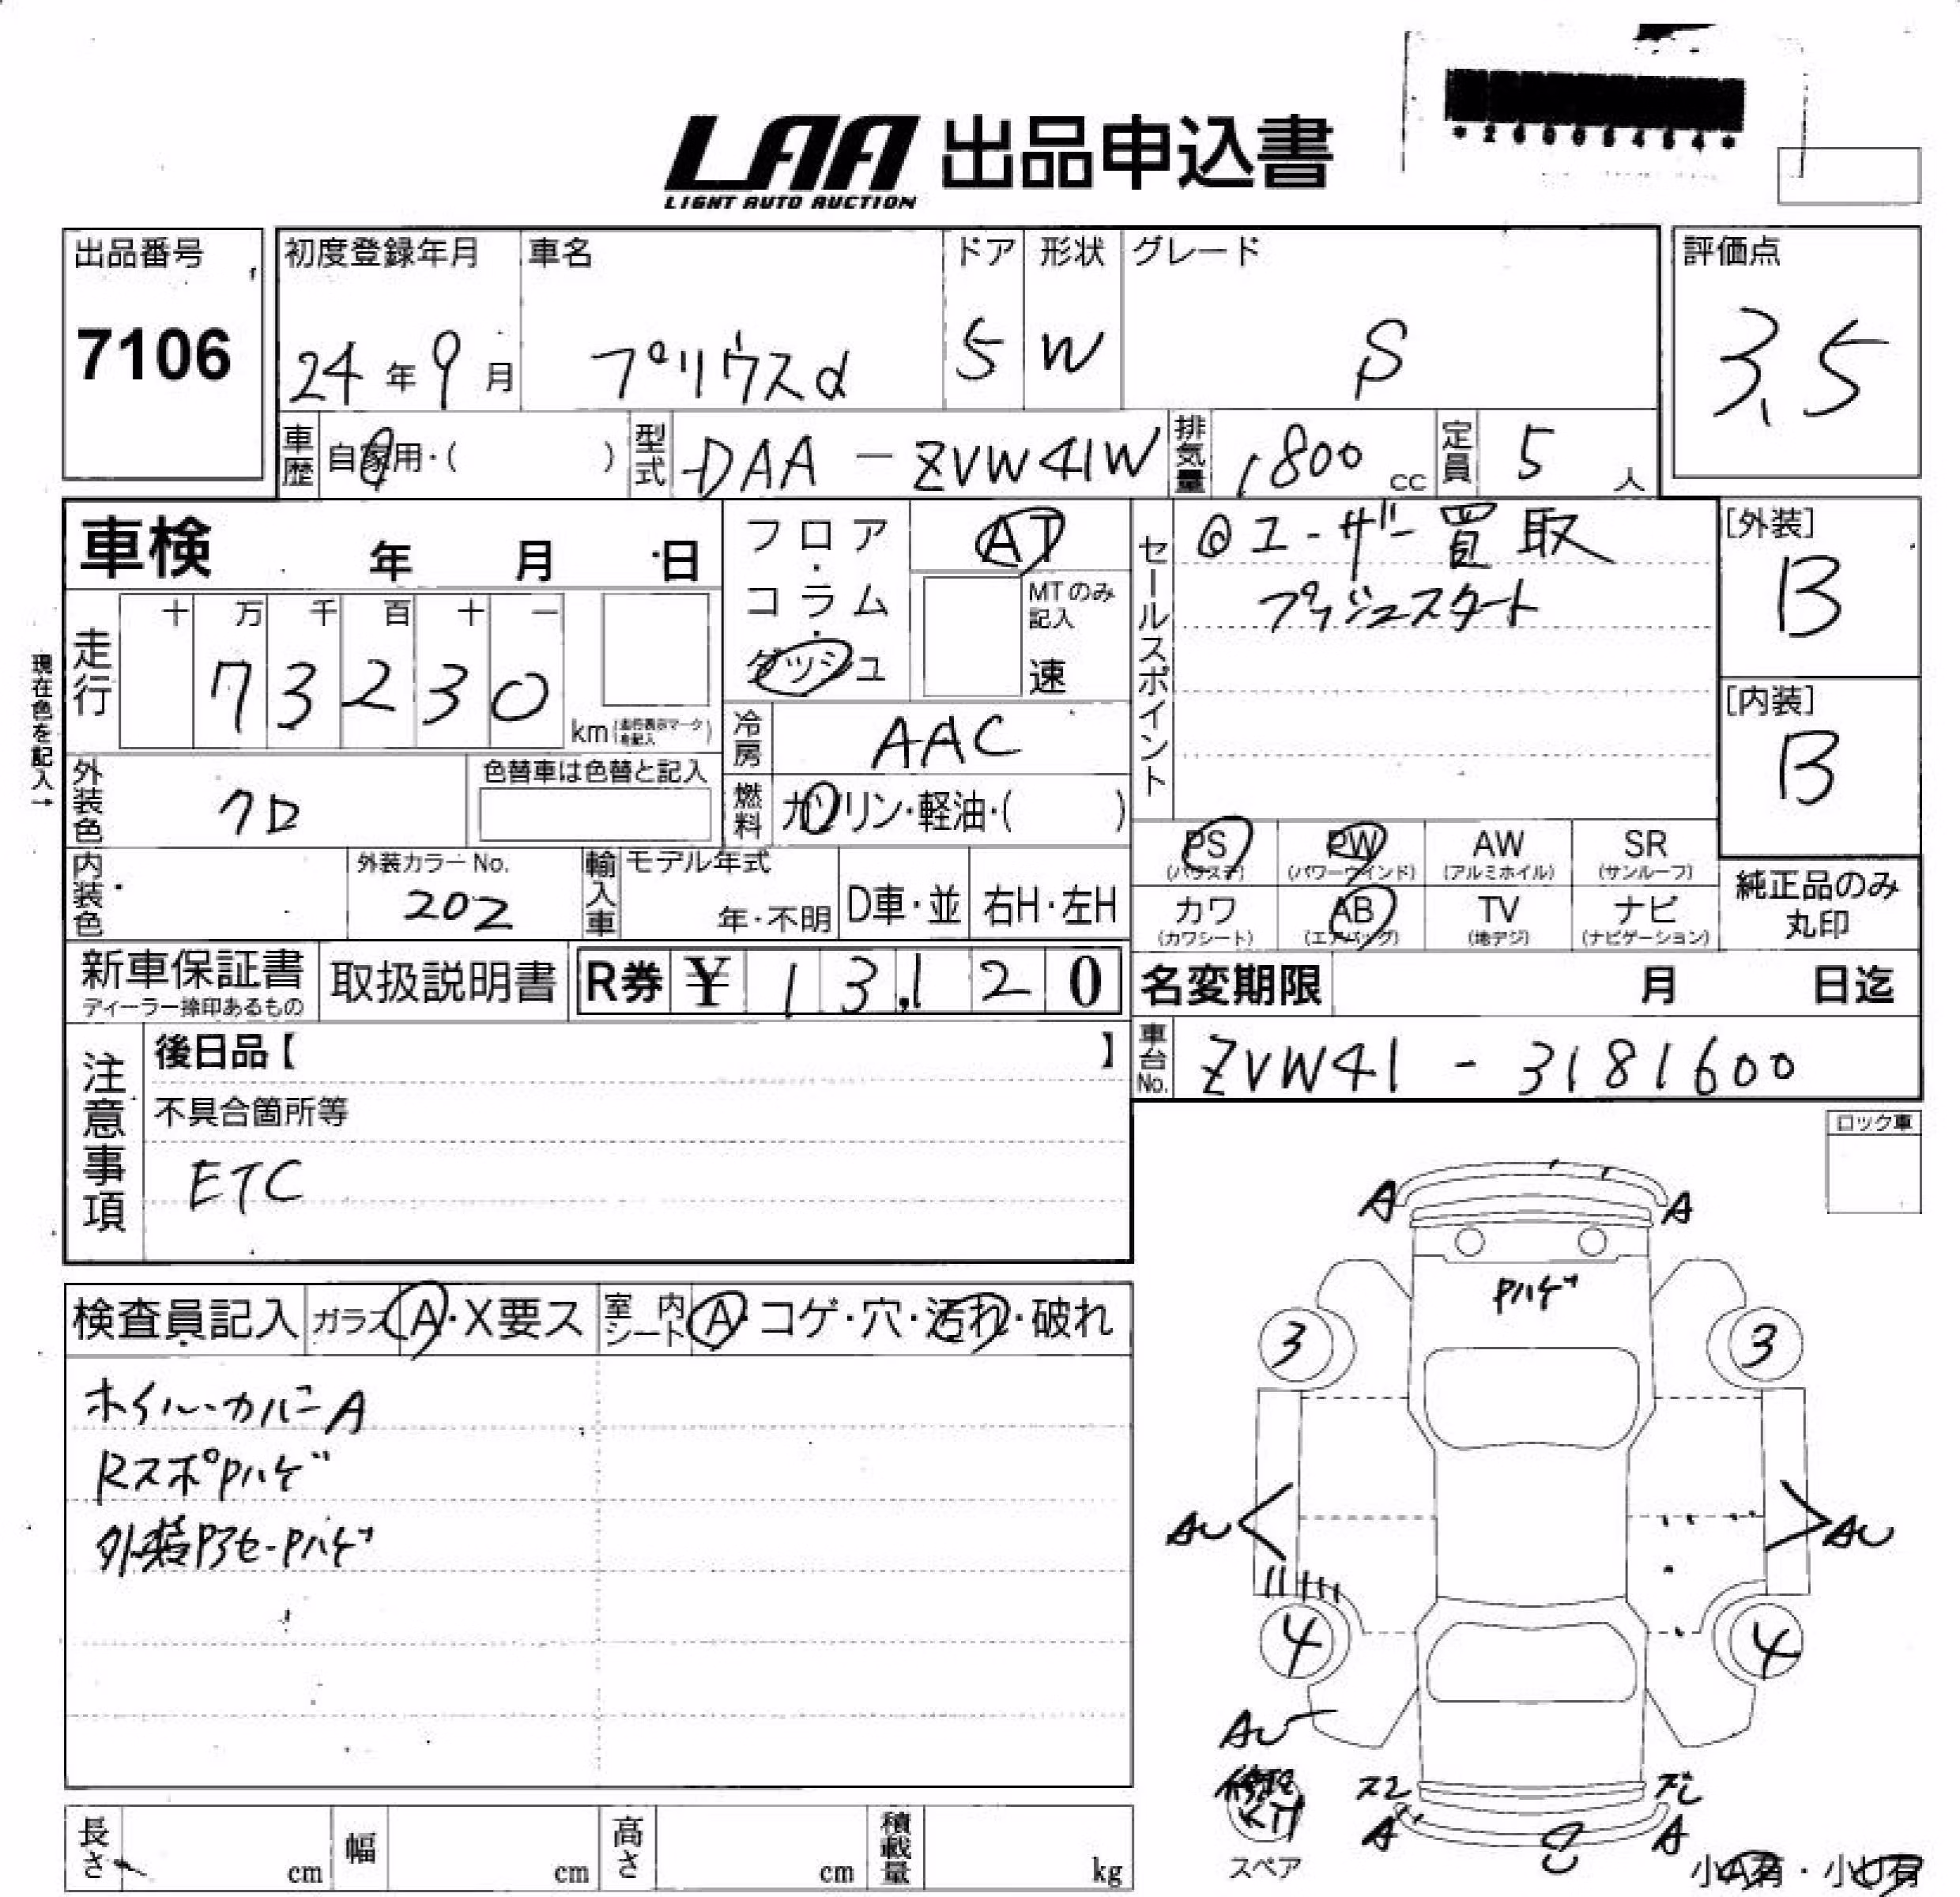 *26005454*
LAA 出品申込書
LIGHT AUTO AUCTION
出品番号
7106
初度登録年月
24年9月
車名
プリウスα
ドア
5
形状
W
グレード
S
評価点
3.5
車歴
自家用・( )
型式
DAA-ZVW41W
排気量
1,800cc
定員
5人
車検 年 月 日
走行
十 万 千 百 十 一
7 3 2 3 0
km(走行表示マークを記入)
現在色を記入→
フロア・コラム・ダッシュ
AT
MTのみ記入
速
冷房
AAC
燃料
ガソリン・軽油・( )
外装色
クロ
色替車は色替と記入
内装色
外装カラーNo.
202
輸入車
モデル年式
年・不明
D車・並
右H・左H
セールスポイント
@ユーザー買取
プッシュスタート
[外装]
B
[内装]
B
PS
(パワステ)
PW
(パワーウインド)
AW
(アルミホイル)
SR
(サンルーフ)
カワ
(カワシート)
AB
(エアバッグ)
TV
(地デジ)
ナビ
(ナビゲーション)
純正品のみ
丸印
新車保証書
ディーラー捺印あるもの
取扱説明書
R券 ¥ 13,120
名変期限 月 日迄
車台No.
ZVW41-3181600
注意事項
後日品【 】
不具合箇所等
ETC
ロック車
検査員記入
ガラス A・X要ス
室内シート A・コゲ・穴・汚れ・破れ
ホイルカバーA
RスポPハゲ
外装アクセーPハゲ
A
A
Pハゲ
3
3
AU
AU
4
4
AU
修理
KIT
スペア
スレ
スレ
A
A
小A有・小U有
長さ cm
幅 cm
高さ cm
積載量 kg